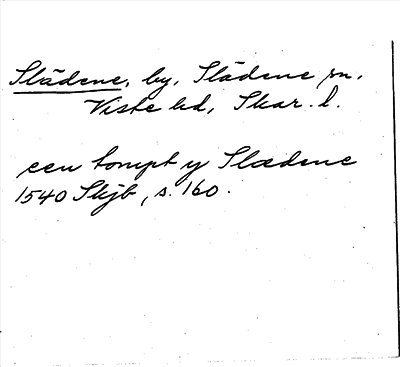 Slädene, by, Slädene sn,
Viste hd, Skar. l.
een tompt y Slædene
1540 Skjb, s. 160.